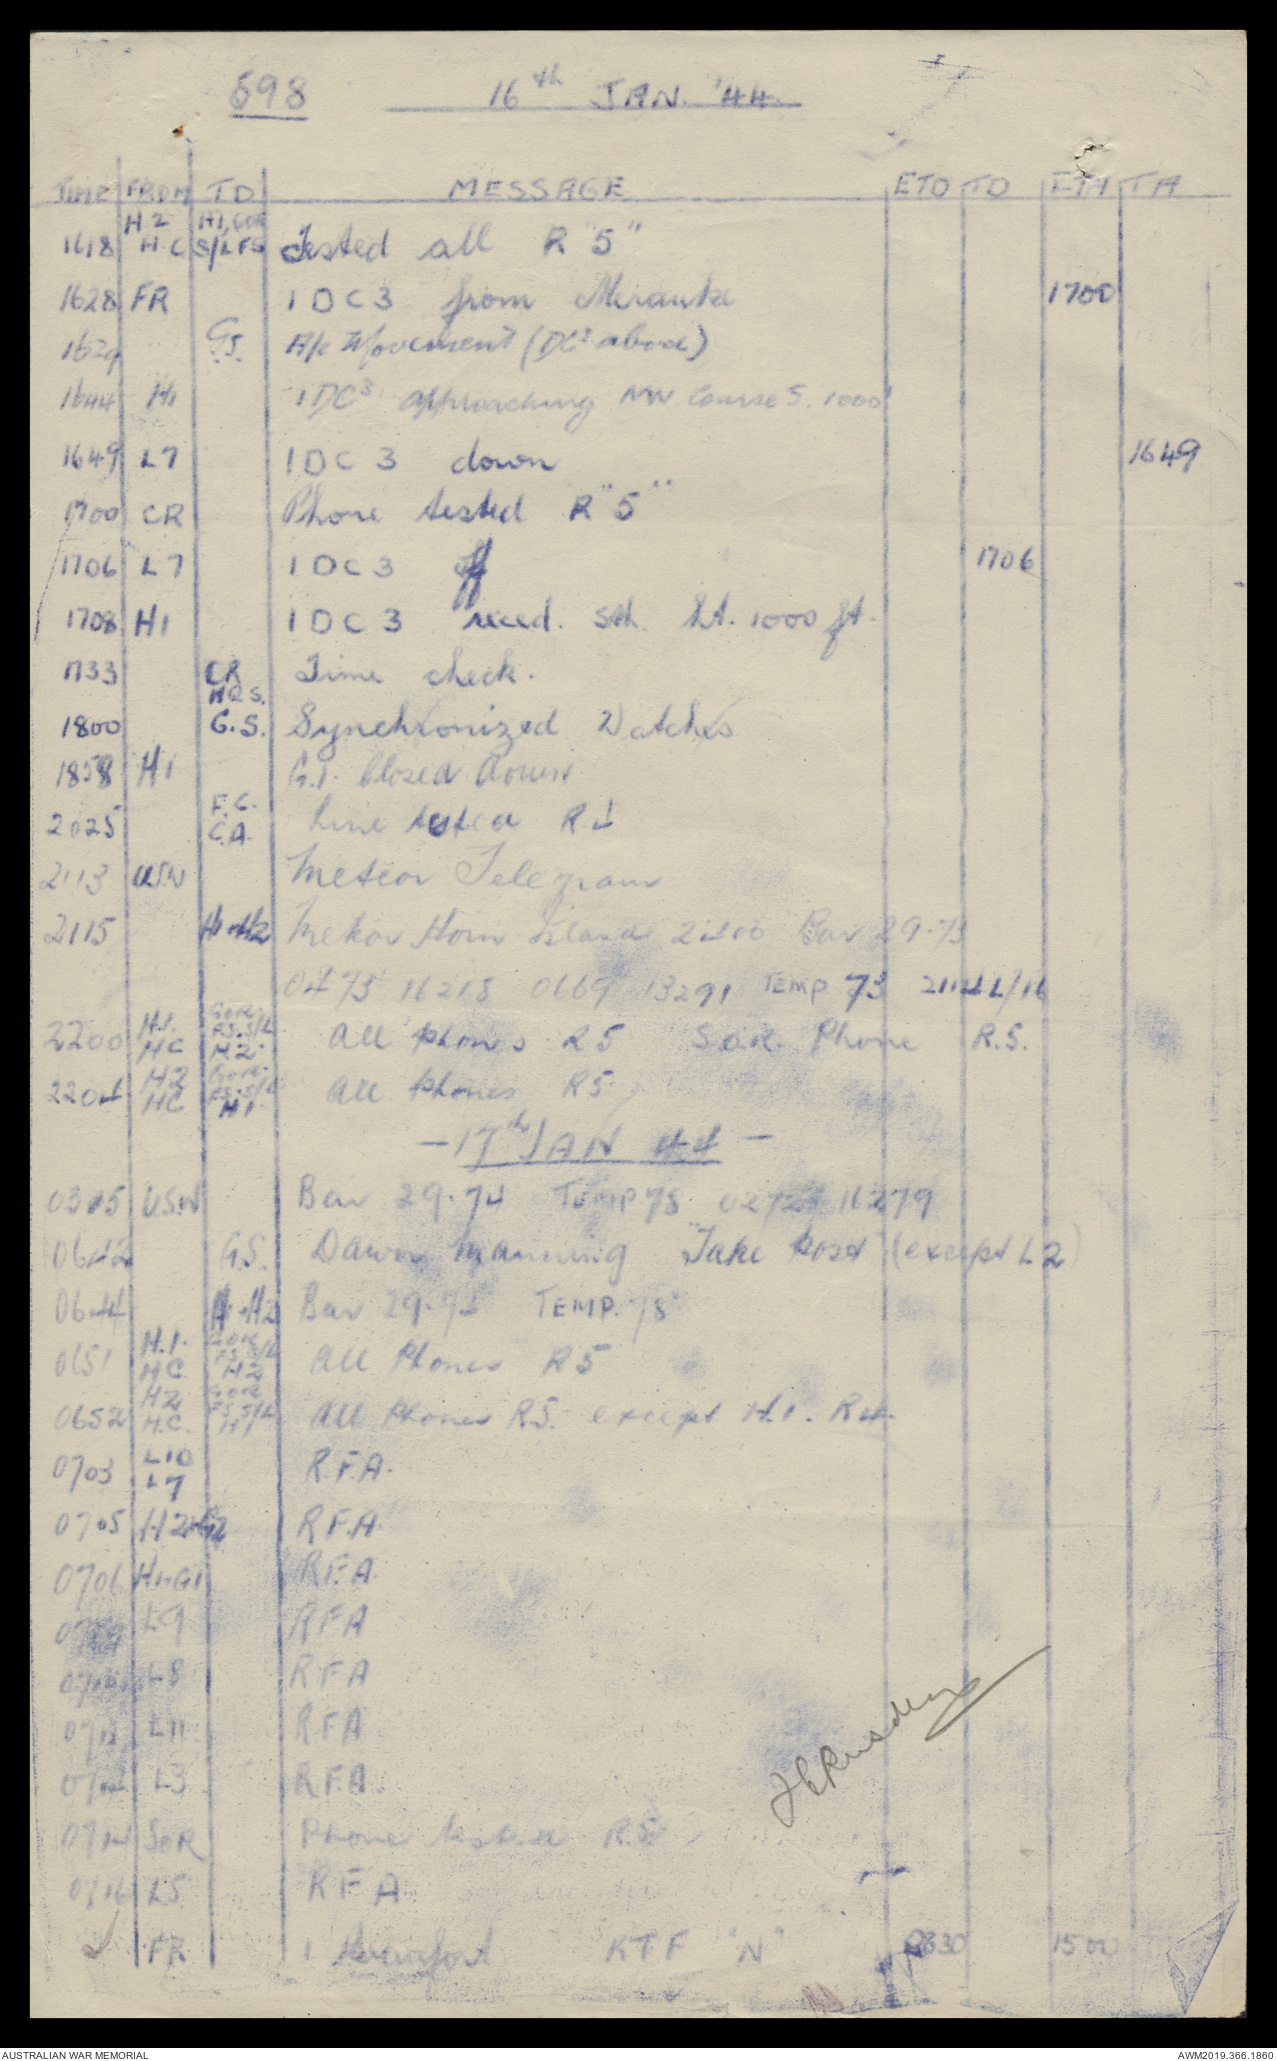 598 16th JAN. '44.
TIME FROM TO MESSAGE ETD TD ETA TA
H.2 H1, GOR
1618 H.C S/L FS Tested all R "5"
1628 FR 1 DC3 from Merauke 1700
1629 G.S. A/c Movement (DC3 above)
1644 H1 1 DC3 approaching NW Course S. 1000'
1649 L7 1 DC3 down 1649
1700 CR Phone tested R "5"
1706 L7 1 DC3 off 1706
1708 H1 1 DC3 reced. Sth. ht. 1000 ft.
1733 CR Time check.
HQS.
1800 G.S. Synchronized Watches
1858 H1 G.1. Closed down
F.C.
2025 C.A. Line tested R.
2113 USN Meteor Telegram
2115 H1-H2 Meteor Horn Island 2400 Bar 29.73
0473 16218 0669 13291 TEMP 73 2114L/16
H.1. GOR
2200 HC FS. S/L H.2. All phones R5 S.O.R. Phone R.5.
H2 GOR.
2204 HC FS. S/L H1. All phones R5
- 17th JAN 44 -
0305 U.S.N Bar 29.74 TEMP 78 16279
0642 G.S. Dawn manning "Take post" (except L2)
0644 H1-H2 Bar TEMP. 78
H.1. GOR
0651 HC FS S/L H2 All Phones R5
H2 GOR
0652 H.C. FS S/L H1 All Phones R5. except H.1. R4.
L10
0703 L7 R.F.A.
0705 H2-G2 R.F.A.
0706 H1-G1 R.F.A.
L9 R F A
L8 R F A
L11 R F A
L3 R.F.A.
SOR Phone tested R5
0716 L5 R F A
FR 1 KTF "N" 0830 1500
AUSTRALIAN WAR MEMORIAL AWM2019.366.1860